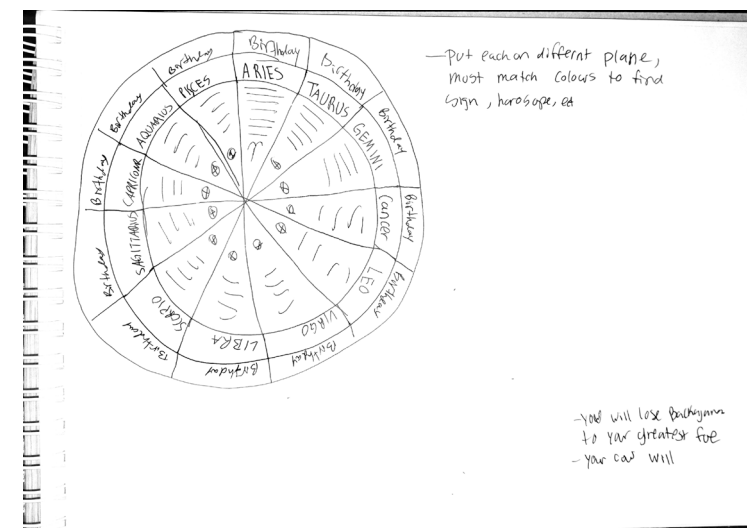 Birthday
Birthday
Birthday
Birthday
Birthday
Birthday
Birthday
Birthday
Birthday
Birthday
Birthday
Birthday
ARIES
TAURUS
GEMINI
Cancer
LEO
VIRGO
LIBRA
SCORPIO
SAGITTARIUS
CAPRICORN
AQUARIUS
PISCES
- Put each on differnt plane,
must match colours to find
sign, horoscope, ect
- you will lose Backgammon
to your greatest foe
- your car will